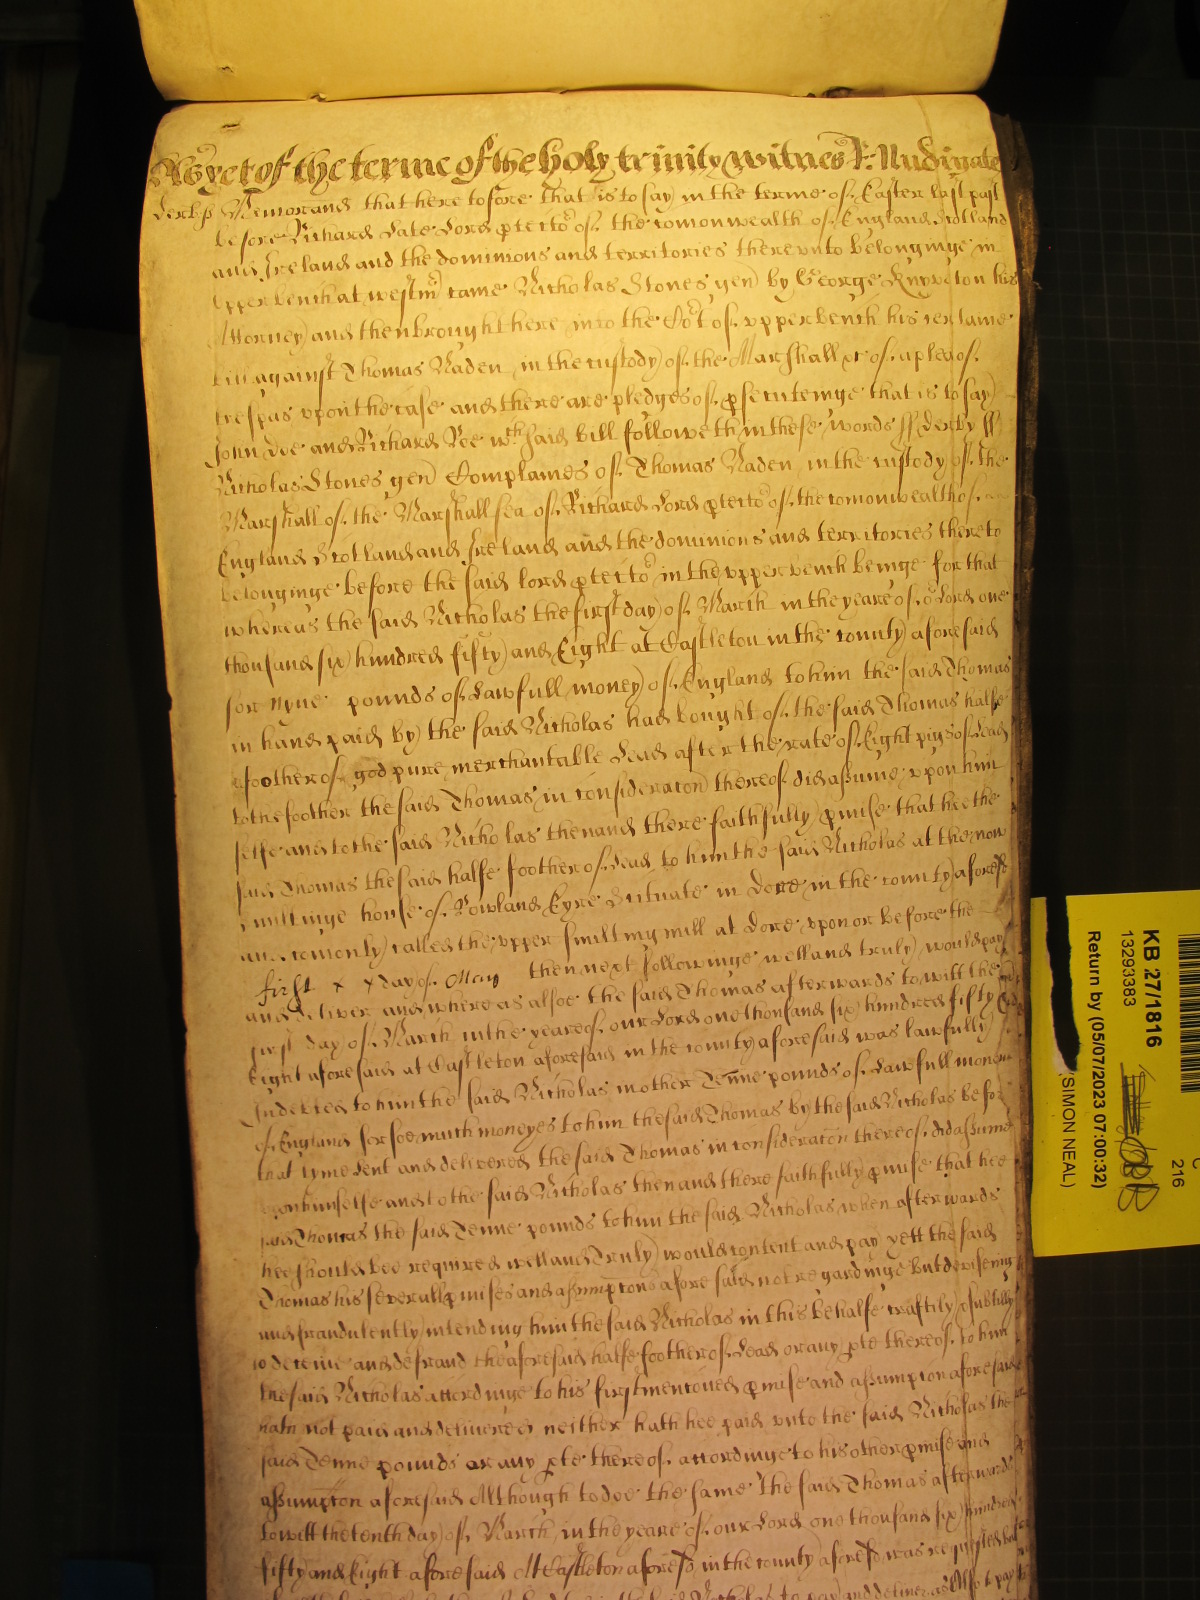 As yet of the terme of the holy trinity witnes R: Nudigate
Derb: ss Memorand that here tofore that is to say in the terme of Easter last past
before Richard Late Lord ptector of the comonwealth of England Scotland
and Ireland and the dominions and territories therevnto belonginge in
vpper bench at westmr came Nicholas Stones gen by George Knyveton his
Attorney and then brought here into the Cort of vpper bench his certaine
bill against Thomas Naden in the custody of the Marshall &c of a plea of
trespas vpon the case and there are pledges of psecuteinge that is to say
John Doe and Richard Roe wch said bill followeth in these words ss Derby ss
Nicholas Stones gen Complaines of Thomas Naden in the custody of the
Marshall of the Marshallsea of Richard Lord ptector of the comonwealth of
England Scotland and Ireland and the dominions and territories thereto
belonginge before the said lord ptector in the vpper bench beinge for that
whereas the said Nicholas the first day of March in the yeare of or Lord one
thousand six hundred fifty and Eight at Castleton in the county aforesaid
for nyne pounds of Lawfull money of England to him the said Thomas
in hand paid by the said Nicholas had bought of the said Thomas halfe
a foother of god pure merchantable Lead after the rate of Eight pigs of Lead
to the foother the said Thomas in consideracon thereof did assume vpon him
selfe and to the said Nicholas then and there faithfully pmise that hee the
said Thomas the said halfe foother of Lead to him the said Nicholas at the now
smiltinge house of Rowland Eyre Scituate in Dore in the county aforesd
and comonly called the vpper smilting mill at Dore vpon or before the
first x x day of May then next followinge well and truly would pay
and deliver and where as alsoe the said Thomas afterwards to witt the
first day of March in the yeare of our Lord one thousand six hundred fifty
Eight aforesaid at Castleton aforesaid in the county aforesaid was lawfully
Indebted to him the said Nicholas in other Tenne pounds of Lawfull money
of England for soe much moneyes to him the said Thomas by the said Nicholas before
that tyme Lent and delivered the said Thomas in consideracon thereof did assume
vpon himselfe and to the said Nicholas then and there faithfully pmise that hee
said Thomas the said Tenne pounds to him the said Nicholas when afterwards
hee should bee required well and Truly would content and pay yett the said
Thomas his severall pmises and assumptons aforesaid not regardinge but deviseing
and fraudulently intending him the said Nicholas in this behalfe craftily & subtilly
to deceive and defraud the aforesaid halfe foother of Lead or any pte thereof to him
the said Nicholas accordinge to his first mentoned pmise and assumption aforesaid
hath not paid and delivered neither hath hee paid vnto the said Nicholas the
said Tenne pounds or any pte thereof accordinge to his other pmise and
assumpton aforesaid Although to doe the same the said Thomas afterwards
to witt the tenth day of March in the yeare of our Lord one thousand six hundred
fifty and Eight aforesaid At Castleton aforesd in the county aforesd was requested
Nicholas to pay and deliver
KB 27/1816
13293383
Return by (05/07/2023 07:00:32)
(SIMON NEAL)
216